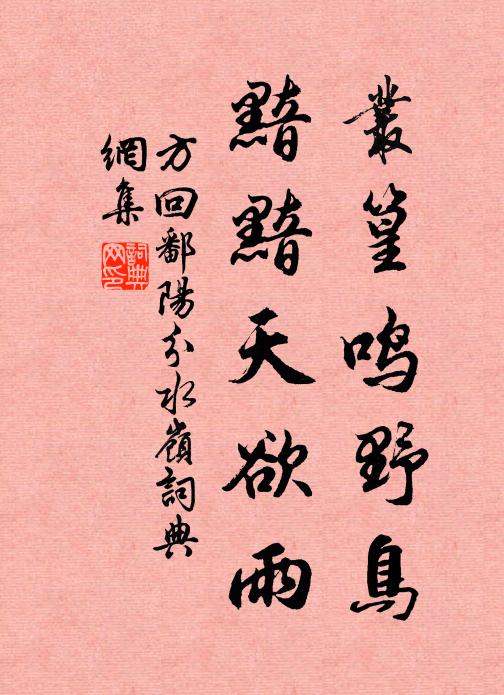 叢篁鳴野鳥
黯黯天欲雨
方回鄱陽分水嶺詞典
網集
詞典
网印